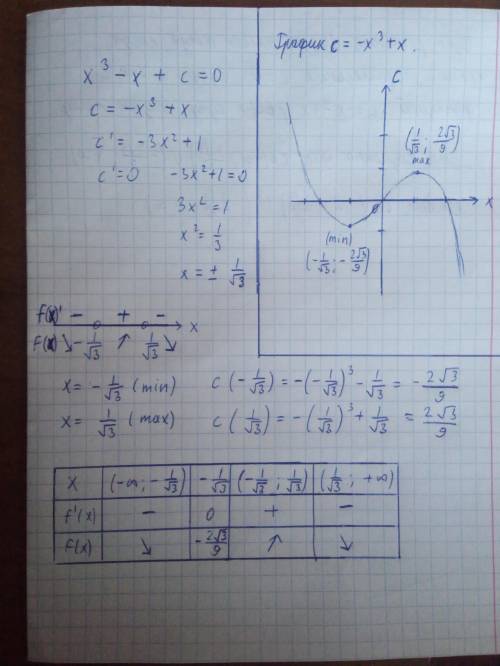 x³ - x + c = 0
c = -x³ + x
c' = -3x² + 1
c' = 0   -3x² + 1 = 0
3x² = 1
x² = 1/3
x = ± 1/√3
График c = -x³ + x.
C
(1/√3 ; 2√3/9)
max
x
0
(min)
(-1/√3 ; -2√3/9)
f(x)' - + - x
f(x) ↘ -1/√3 ↑ 1/√3 ↘
x = -1/√3 (min)   c(-1/√3) = -(-1/√3)³ - 1/√3 = -2√3/9
x = 1/√3 (max)   c(1/√3) = -(1/√3)³ + 1/√3 = 2√3/9
x | (-∞; -1/√3) | -1/√3 | (-1/√3 ; 1/√3) | (1/√3 ; +∞)
f'(x) | - | 0 | + | -
f(x) | ↘ | -2√3/9 | ↑ | ↘